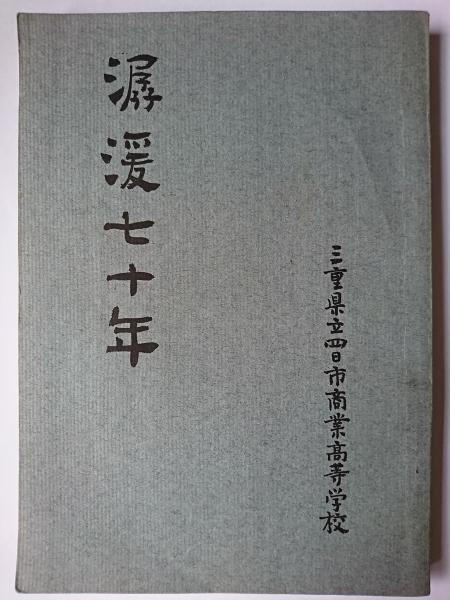 潺湲七十年
三重県立四日市商業高等学校